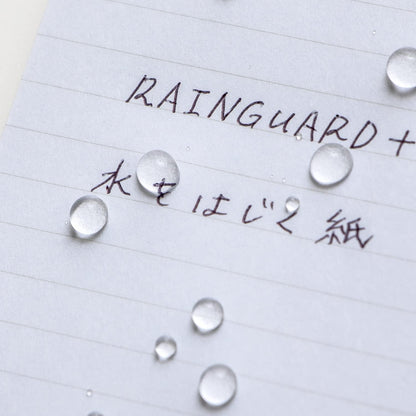 RAINGUARD+
水をはじく紙